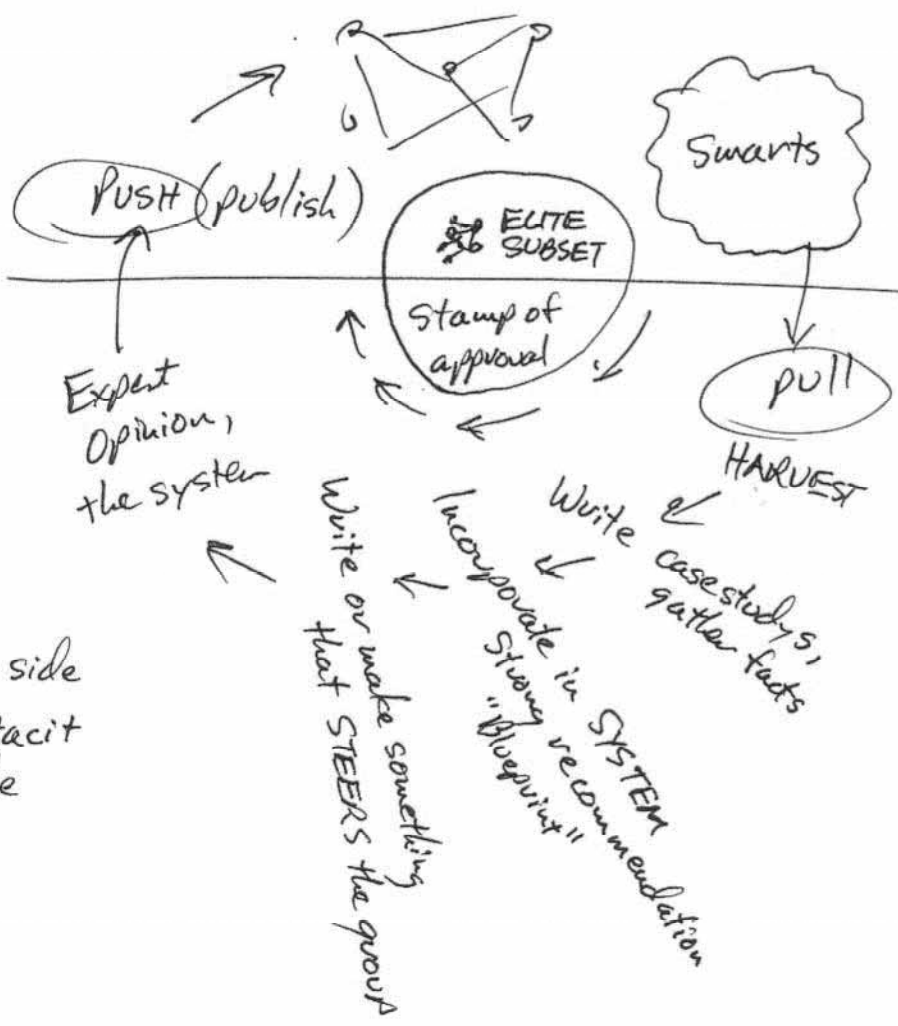 Smarts
PUSH (publish)
ELITE
SUBSET
Stamp of
approval
pull
HARVEST
Expert
Opinion,
the system
Write
case studys,
gather facts
Incorporate in SYSTEM
Strong recommendation
"Blueprint"
Write or make something
that STEERS the group
side
tacit